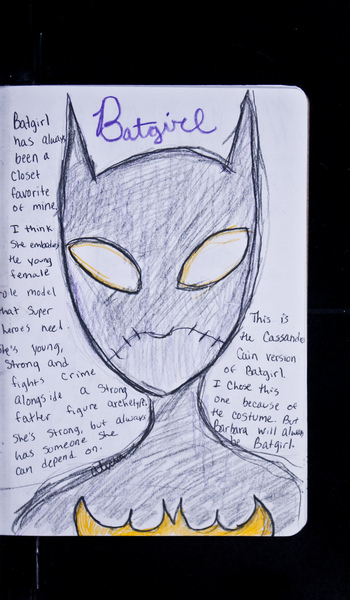 Batgirl
Batgirl
has always
been a
closet
favorite
of mine
I think
She embodies
the young
female
role model
that super
heroes need.
She's young,
Strong and
fights crime
alongside a strong
father figure archetype.
She's strong, but always
has someone she
can depend on.
This is
the Cassandra
Cain version
of Batgirl.
I chose this
one because of
the costume. But
Barbara will always
be Batgirl.